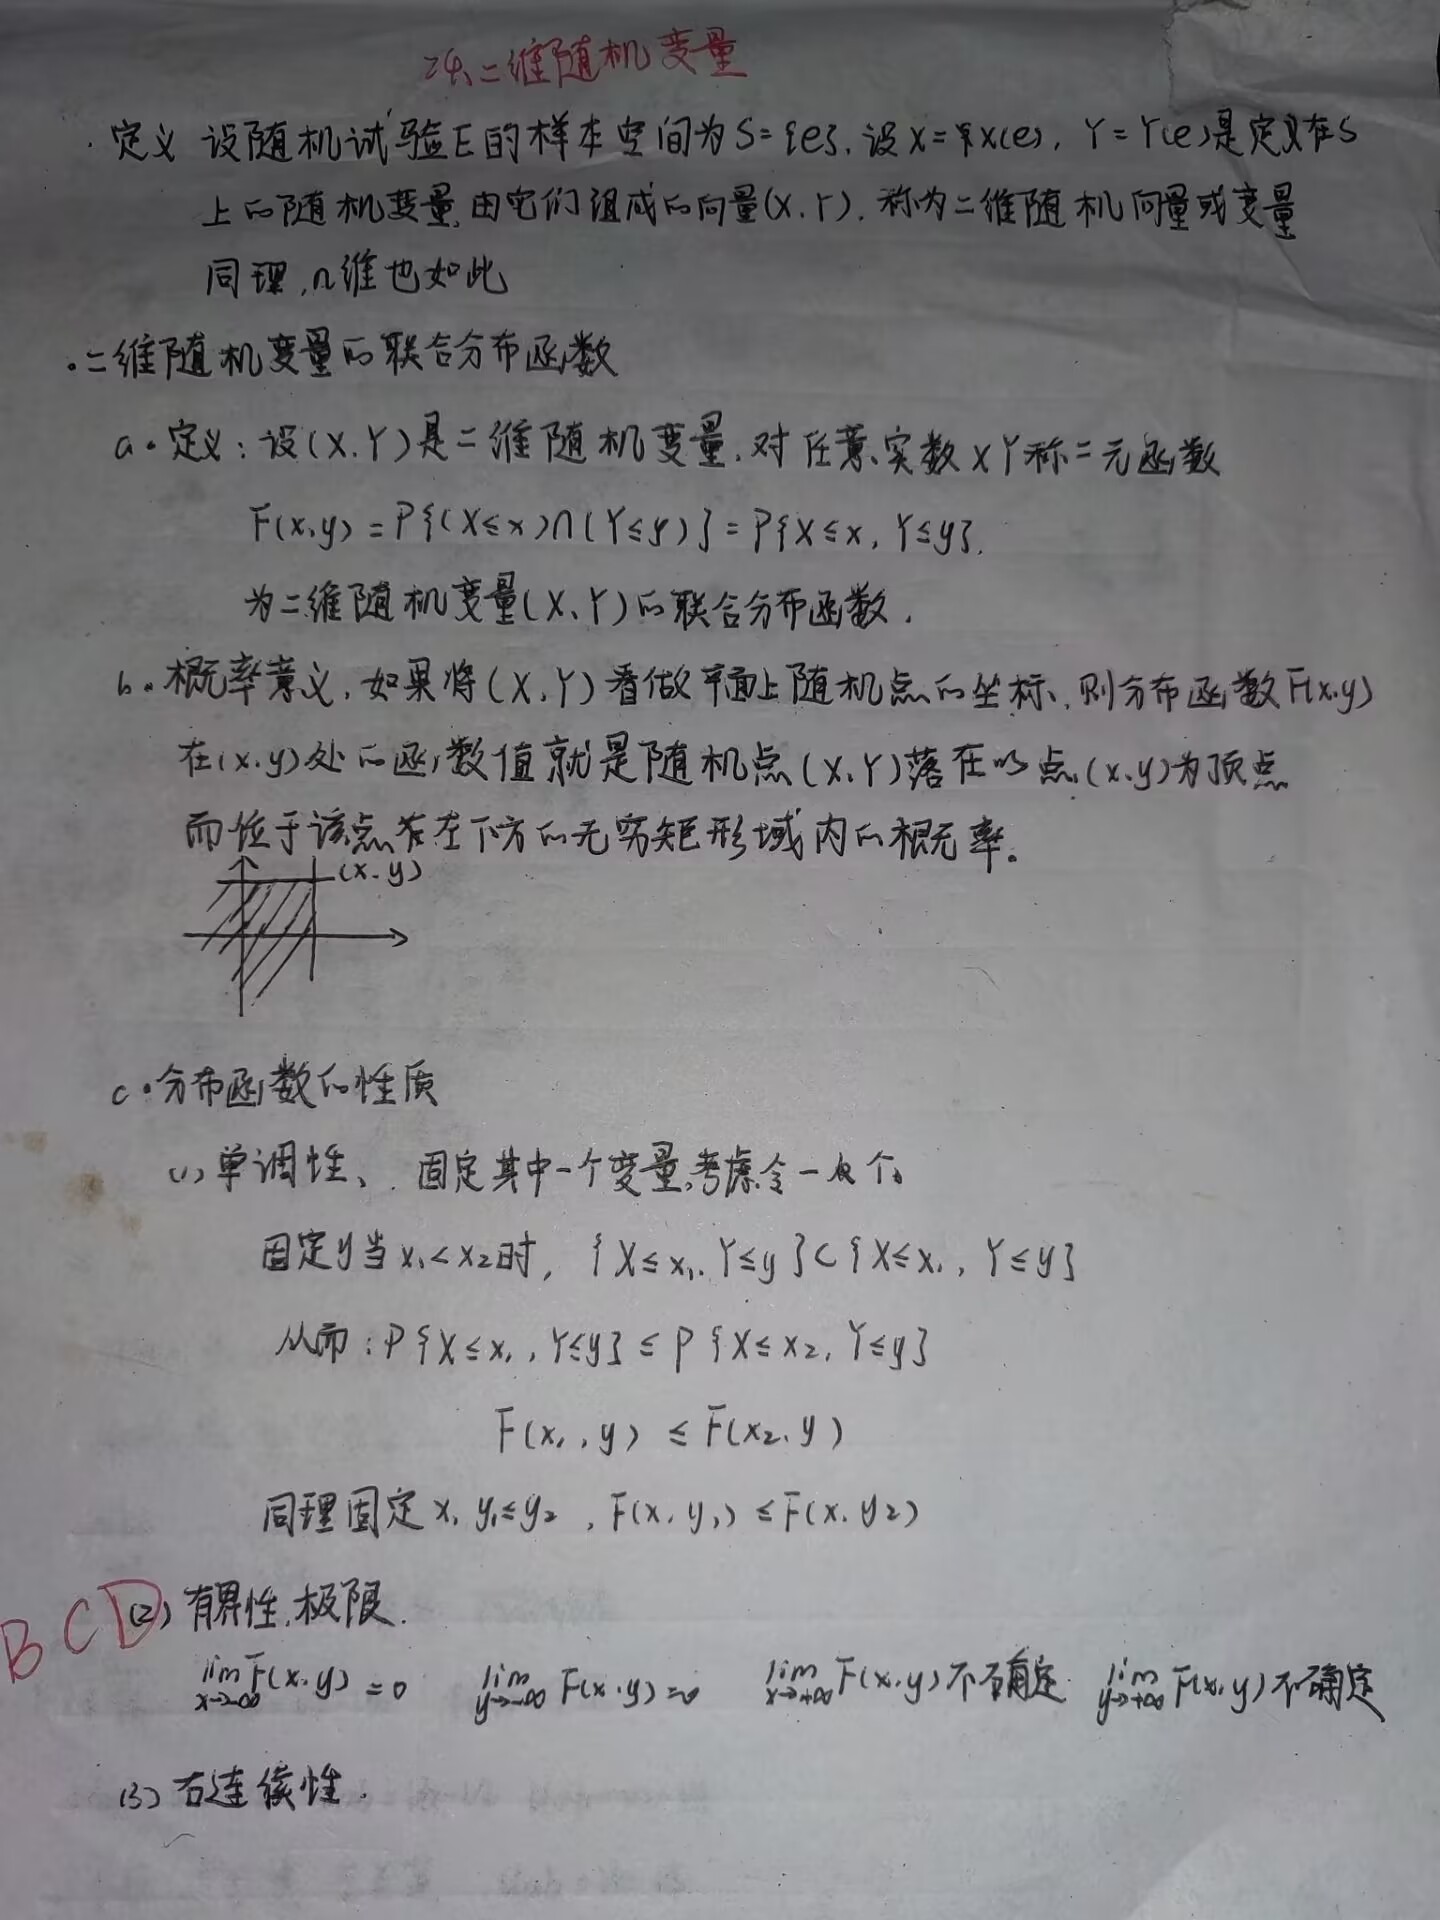 二维随机变量
·定义 设随机试验E的样本空间为S={e}. 设X=X(e), Y=Y(e)是定义在S
上的随机变量,由它们组成的向量(X,Y). 称为二维随机向量或变量
同理,n维也如此
·二维随机变量的联合分布函数
a·定义:设(X,Y)是二维随机变量,对任意实数XY称二元函数
F(x,y)=P{(X≤x)∩(Y≤y)}=P{X≤x, Y≤y}.
为二维随机变量(X、Y)的联合分布函数.
b·概率意义,如果将(X,Y)看做平面上随机点的坐标,则分布函数F(x,y)
在(x,y)处的函数值就是随机点(X、Y)落在以点(x,y)为顶点
而位于该点左下方的无穷矩形域内的概率。
(x,y)
c·分布函数的性质
(1)单调性、固定其中一个变量,考虑令一个
固定y当x₁<x₂时, {X≤x₁, Y≤y}⊂{X≤x₁, Y≤y}
从而:P{X≤x₁, Y≤y}≤P{X≤x₂, Y≤y}
F(x₁,y)≤F(x₂,y)
同理固定x, y₁≤y₂, F(x,y₁)≤F(x,y₂)
BCD
(2)有界性,极限.
lim x→-∞ F(x,y)=0 lim y→-∞ F(x,y)=0 lim x→+∞ F(x,y)不确定 lim y→+∞ F(x,y)不确定
(3)右连续性.